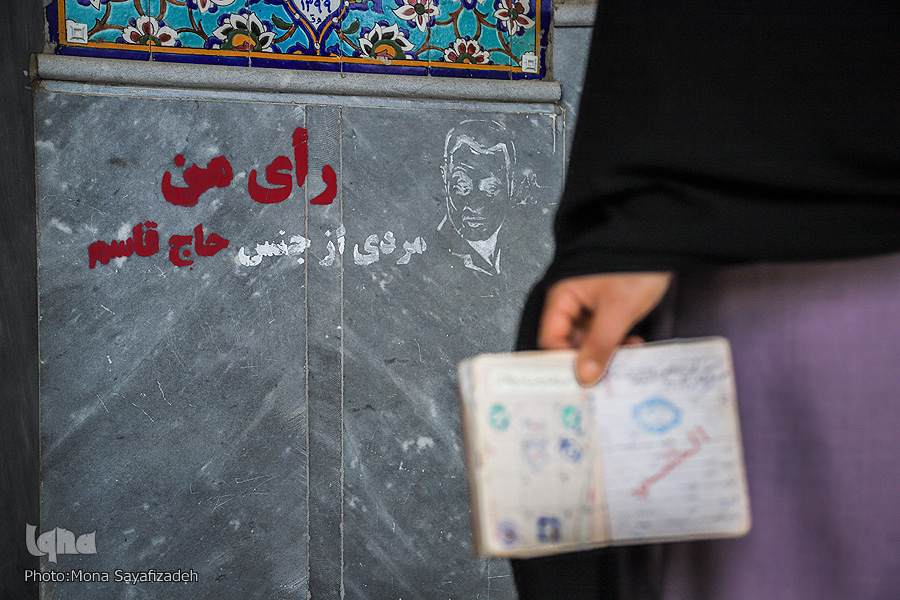 ۱۳۹۹
رأی من
مردی از جنس حاج قاسم
iqna
Photo:Mona Sayafizadeh